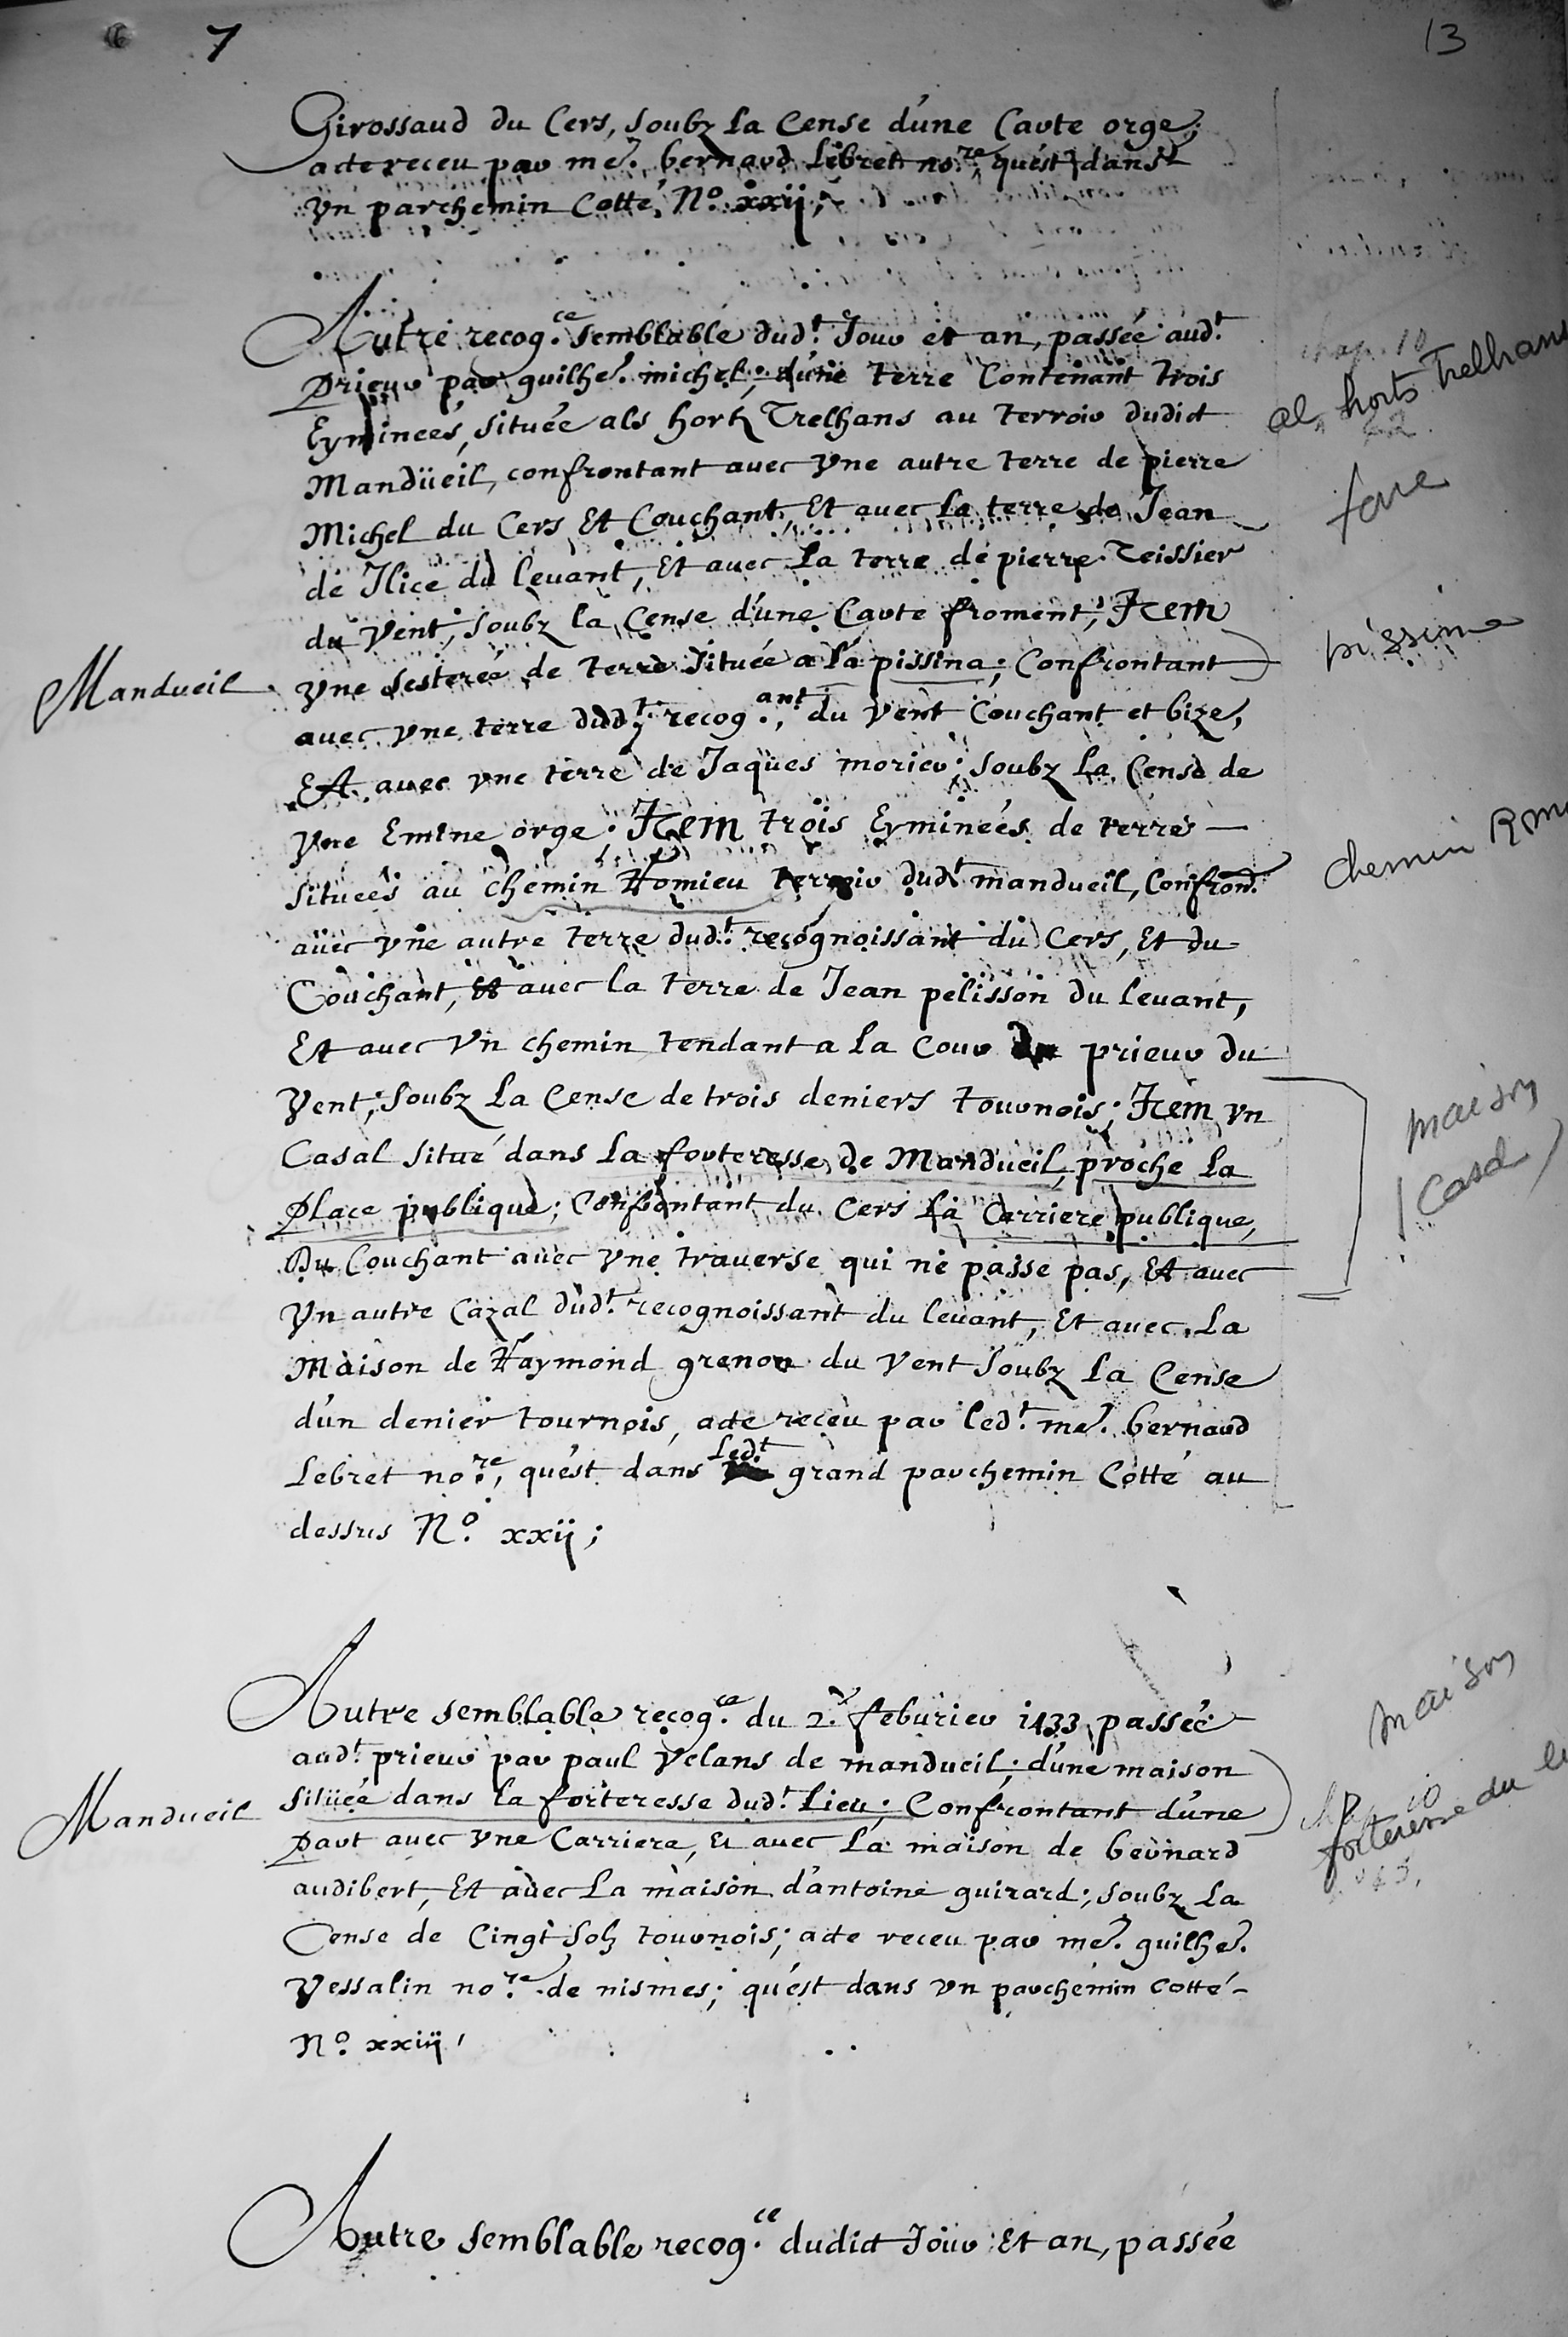 7
13
Girossaud du Cers, soubz la Cense d'une Carte orge;
acte receu par me. bernard Lebret no.re, qu'est dans
Vn parchemin Cotté, N.o xxij;
Autre recog.ce semblable dud.t Jour et an, passée aud.t
Prieur par guilhe. michel; d'une terre Contenant trois
Eyminées, située als hortz Trelhans au terroir dudict
Mandüeil, confrontant avec Vne autre terre de pierre
Michel du Cers Et Couchant, Et avec la terre de Jean
de Ilice du levant, Et avec la terre de pierre Teissier
du Vent, soubz la Cense d'une Carte froment; Item
Vne sesterée de terre située a la pissina; Confrontant
avec Vne terre dud.t recog.ant, du Vent Couchant et bize,
Et avec vne terre de Jaques morier; soubz la Cense de
Vne Emine orge. Item trois Eyminées de terre —
situées au chemin Romieu terroir dud.t mandueil, Confron.t
avec vne autre terre dud.t recognoissant du Cers, Et du
Couchant, Et avec la terre de Jean pelisson du levant,
Et avec Vn chemin tendant a la Cour du prieur du
Vent; soubz La Cense de trois deniers tournois; Item vn
Casal situé dans la forteresse de Mandueil, proche la
Place publique; Confrontant du Cers la Carriere publique,
Du Couchant avec Vne traverse qui ne passe pas, Et avec
Vn autre Cazal dud.t recognoissant du levant, Et avec La
Maison de Raymond grenon du Vent soubz La Cense
d'un denier tournois, acte receu par led.t me. bernard
Lebret no.re, qu'est dans Led.t grand parchemin Cotté au
dessus N.o xxij;
Autre semblable recog.ce du 2. feburier 1433 passée
aud.t prieur par paul Velans de mandueil; d'une maison
située dans la forteresse dud.t Lieu; Confrontant d'une
Part avec Vne Carriere, Et avec La maison de bernard
audibert, Et avec La maison d'antoine guirard; soubz La
Cense de Cinqt solz tournois; acte receu par me. guilhe.
Vessalin no.re de nismes; qu'est dans vn parchemin cotté -
N.o xxiij
Autre semblable recog.ce dudict Jour Et an, passée
Mandueil
Mandueil
chap. 10
als horts Trelhans
pissine
chemin Rom
maison
(Casal)
maison
10
forteresse du